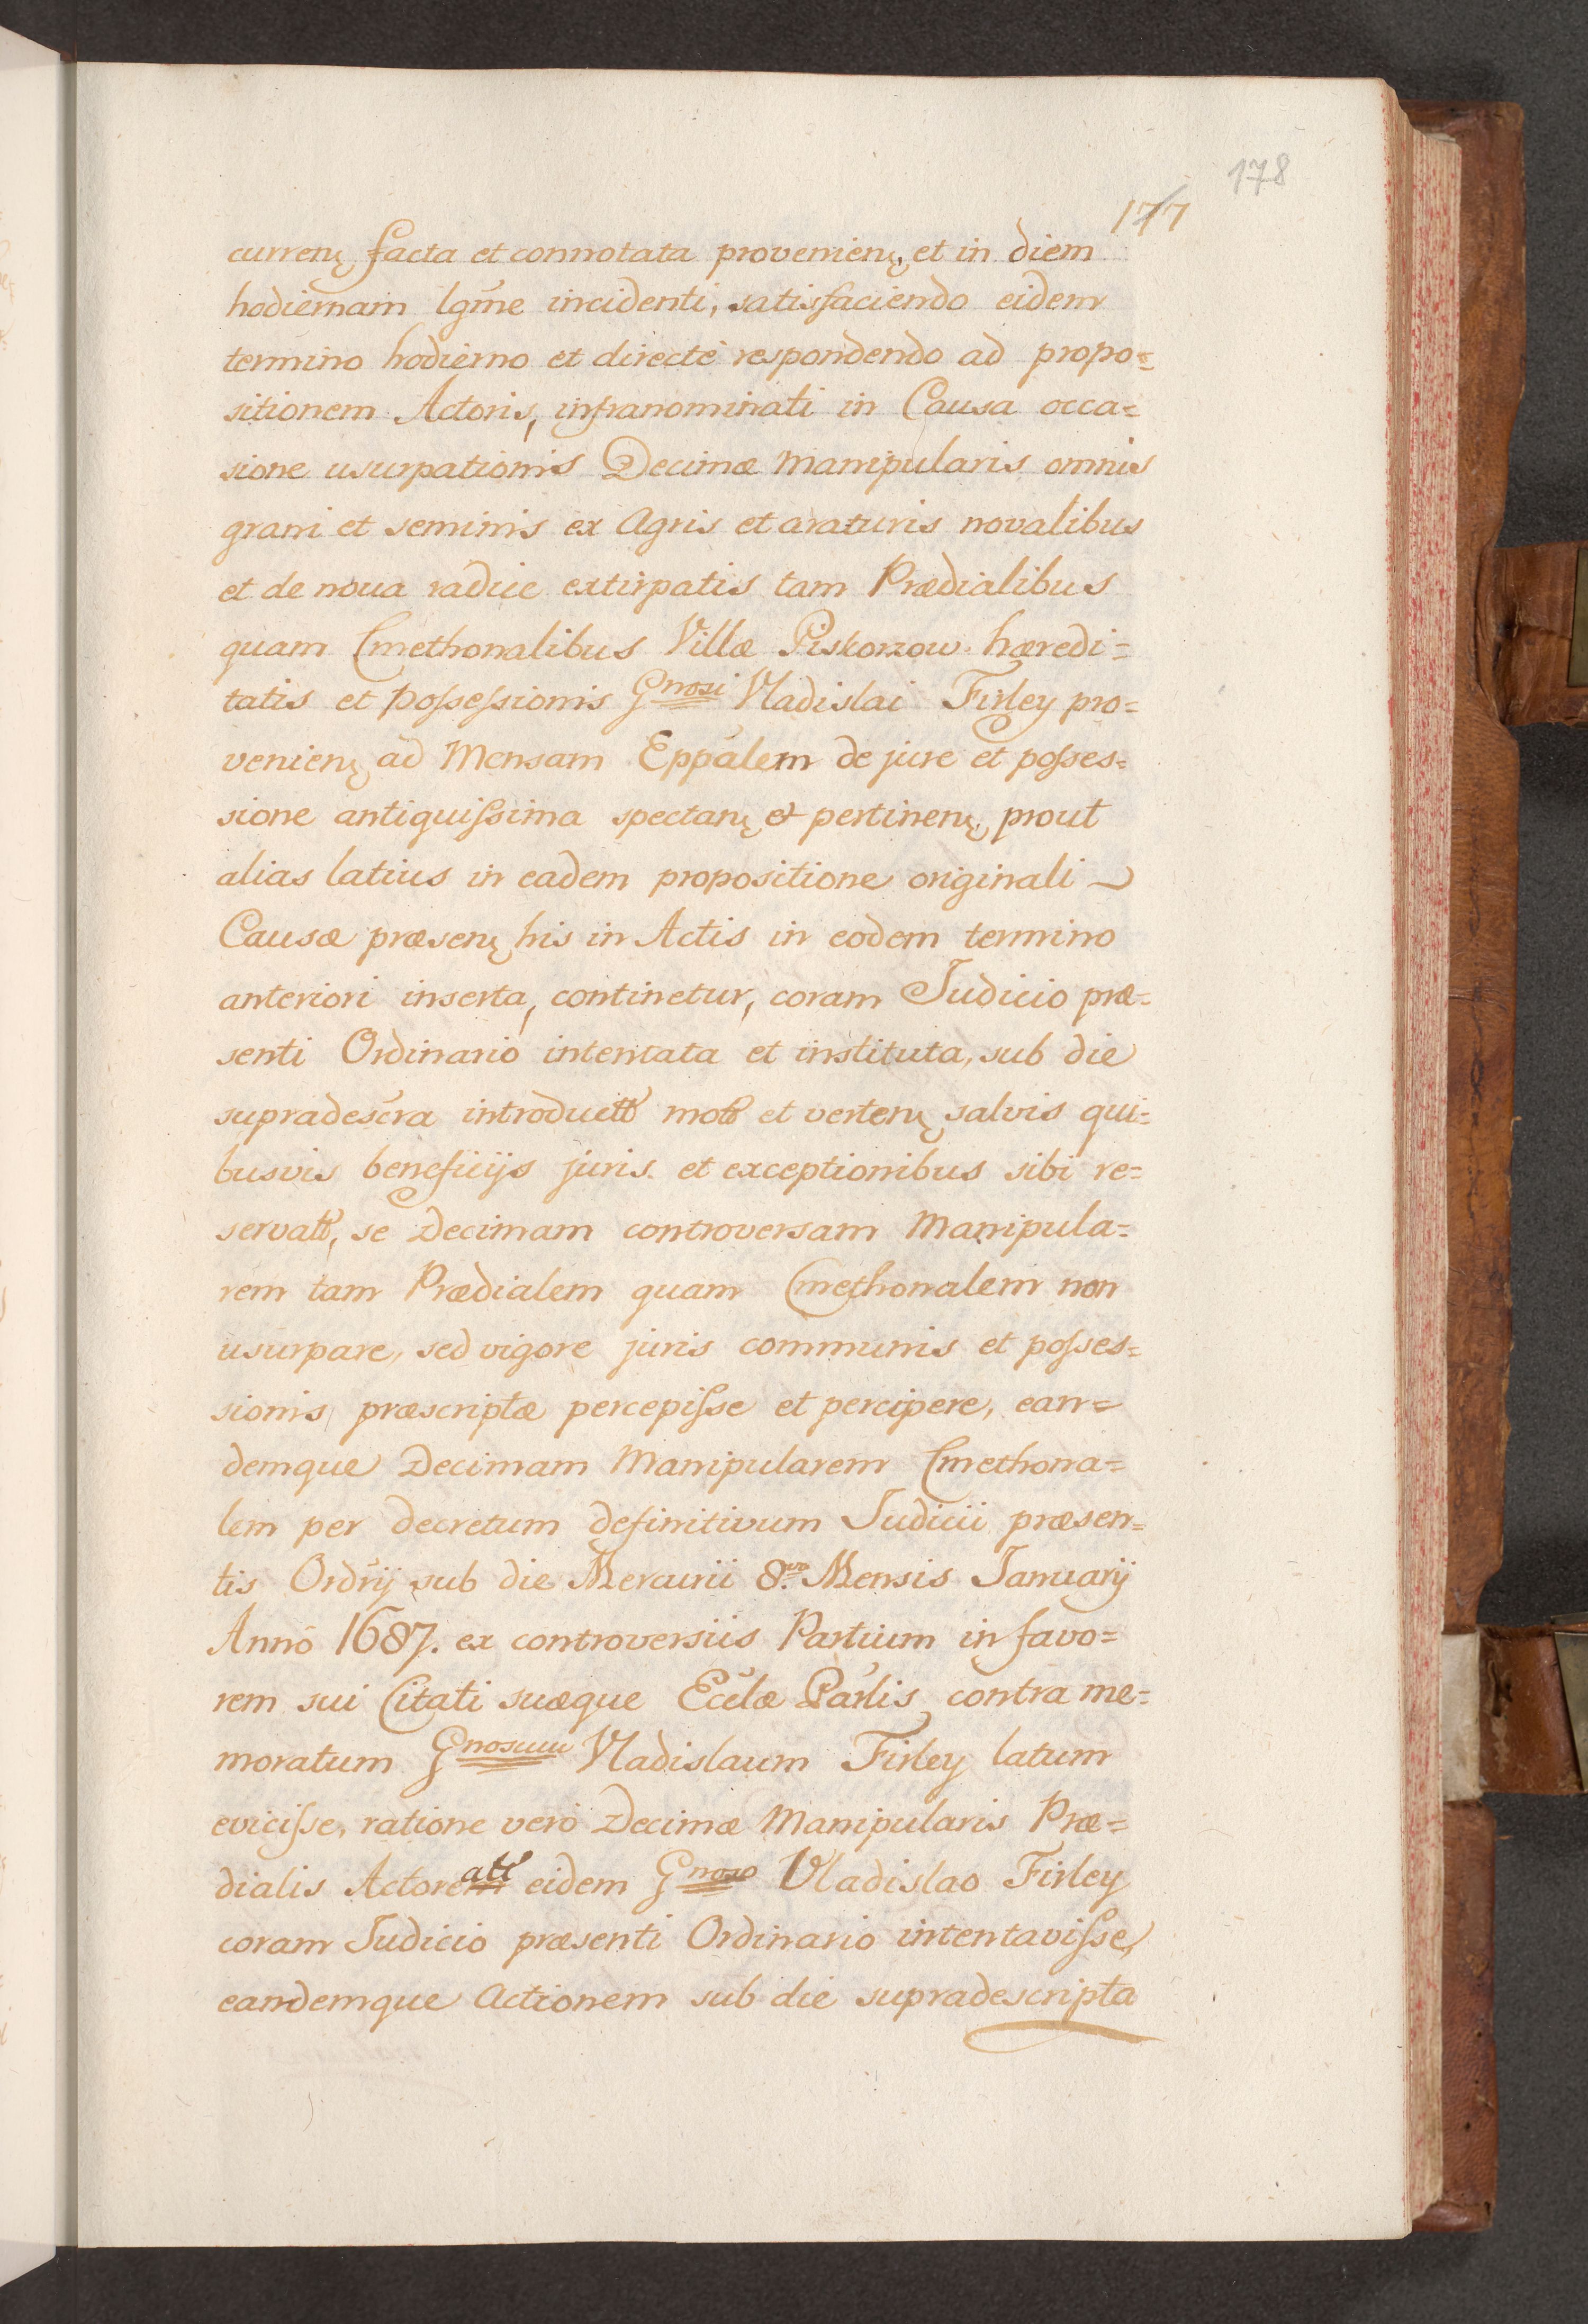 178
177
currenꝫ facta et connotata provenienꝫ, et in diem
hodiernam lgĩme incidenti, satisfaciendo eidem
termino hodierno et directè respondendo ad propo=
sitionem Actoris, infranominati in Causa occa=
sione usurpationis Decimæ Manipularis omnis
grani et seminis ex Agris et araturis novalibus
et de noua radice extirpatis tam Prædialibus
quam Cmethonalibus Villæ Piskorzow hæredi=
tatis et possessionis Gnosi Vladislai Firley pro=
venienꝫ ad Mensam Eppálem de jure et posses=
sione antiquissima spectanꝫ et pertinenꝫ, prout
alias latius in eadem propositione originali
Causæ præsenꝫ his in Actis in eodem termino
anteriori inserta, continetur, coram Judicio præ=
senti Ordinario intentata et instituta, sub die
supradescra introductt mott et vertenꝫ salvis qui=
busvis beneficijs juris et exceptionibus sibi re=
servatt, se Decimam controversam Manipula=
rem tam Prædialem quam Cmethonalem non
usurpare, sed vigore juris communis et posses=
sionis præscriptæ percepisse et percipere, ean=
demque Decimam Manipularem Cmethona=
lem per decretum definitivum Judicii præsen=
tis Ordrij sub die Mercurii 8.va Mensis Januarij
Annõ 1687. ex controversiis Partium in favo=
rem sui Citati suæque Ecclæ Parlis contra me=
moratum Gnosum Vladislaum Firley latum
evicisse, ratione verò Decimæ Manipularis Præ=
dialis Actorem att eidem Gnoso Vladislao Firley
coram Judicio præsenti Ordinario intentavisse,
eandemque Actionem sub die supradescripta